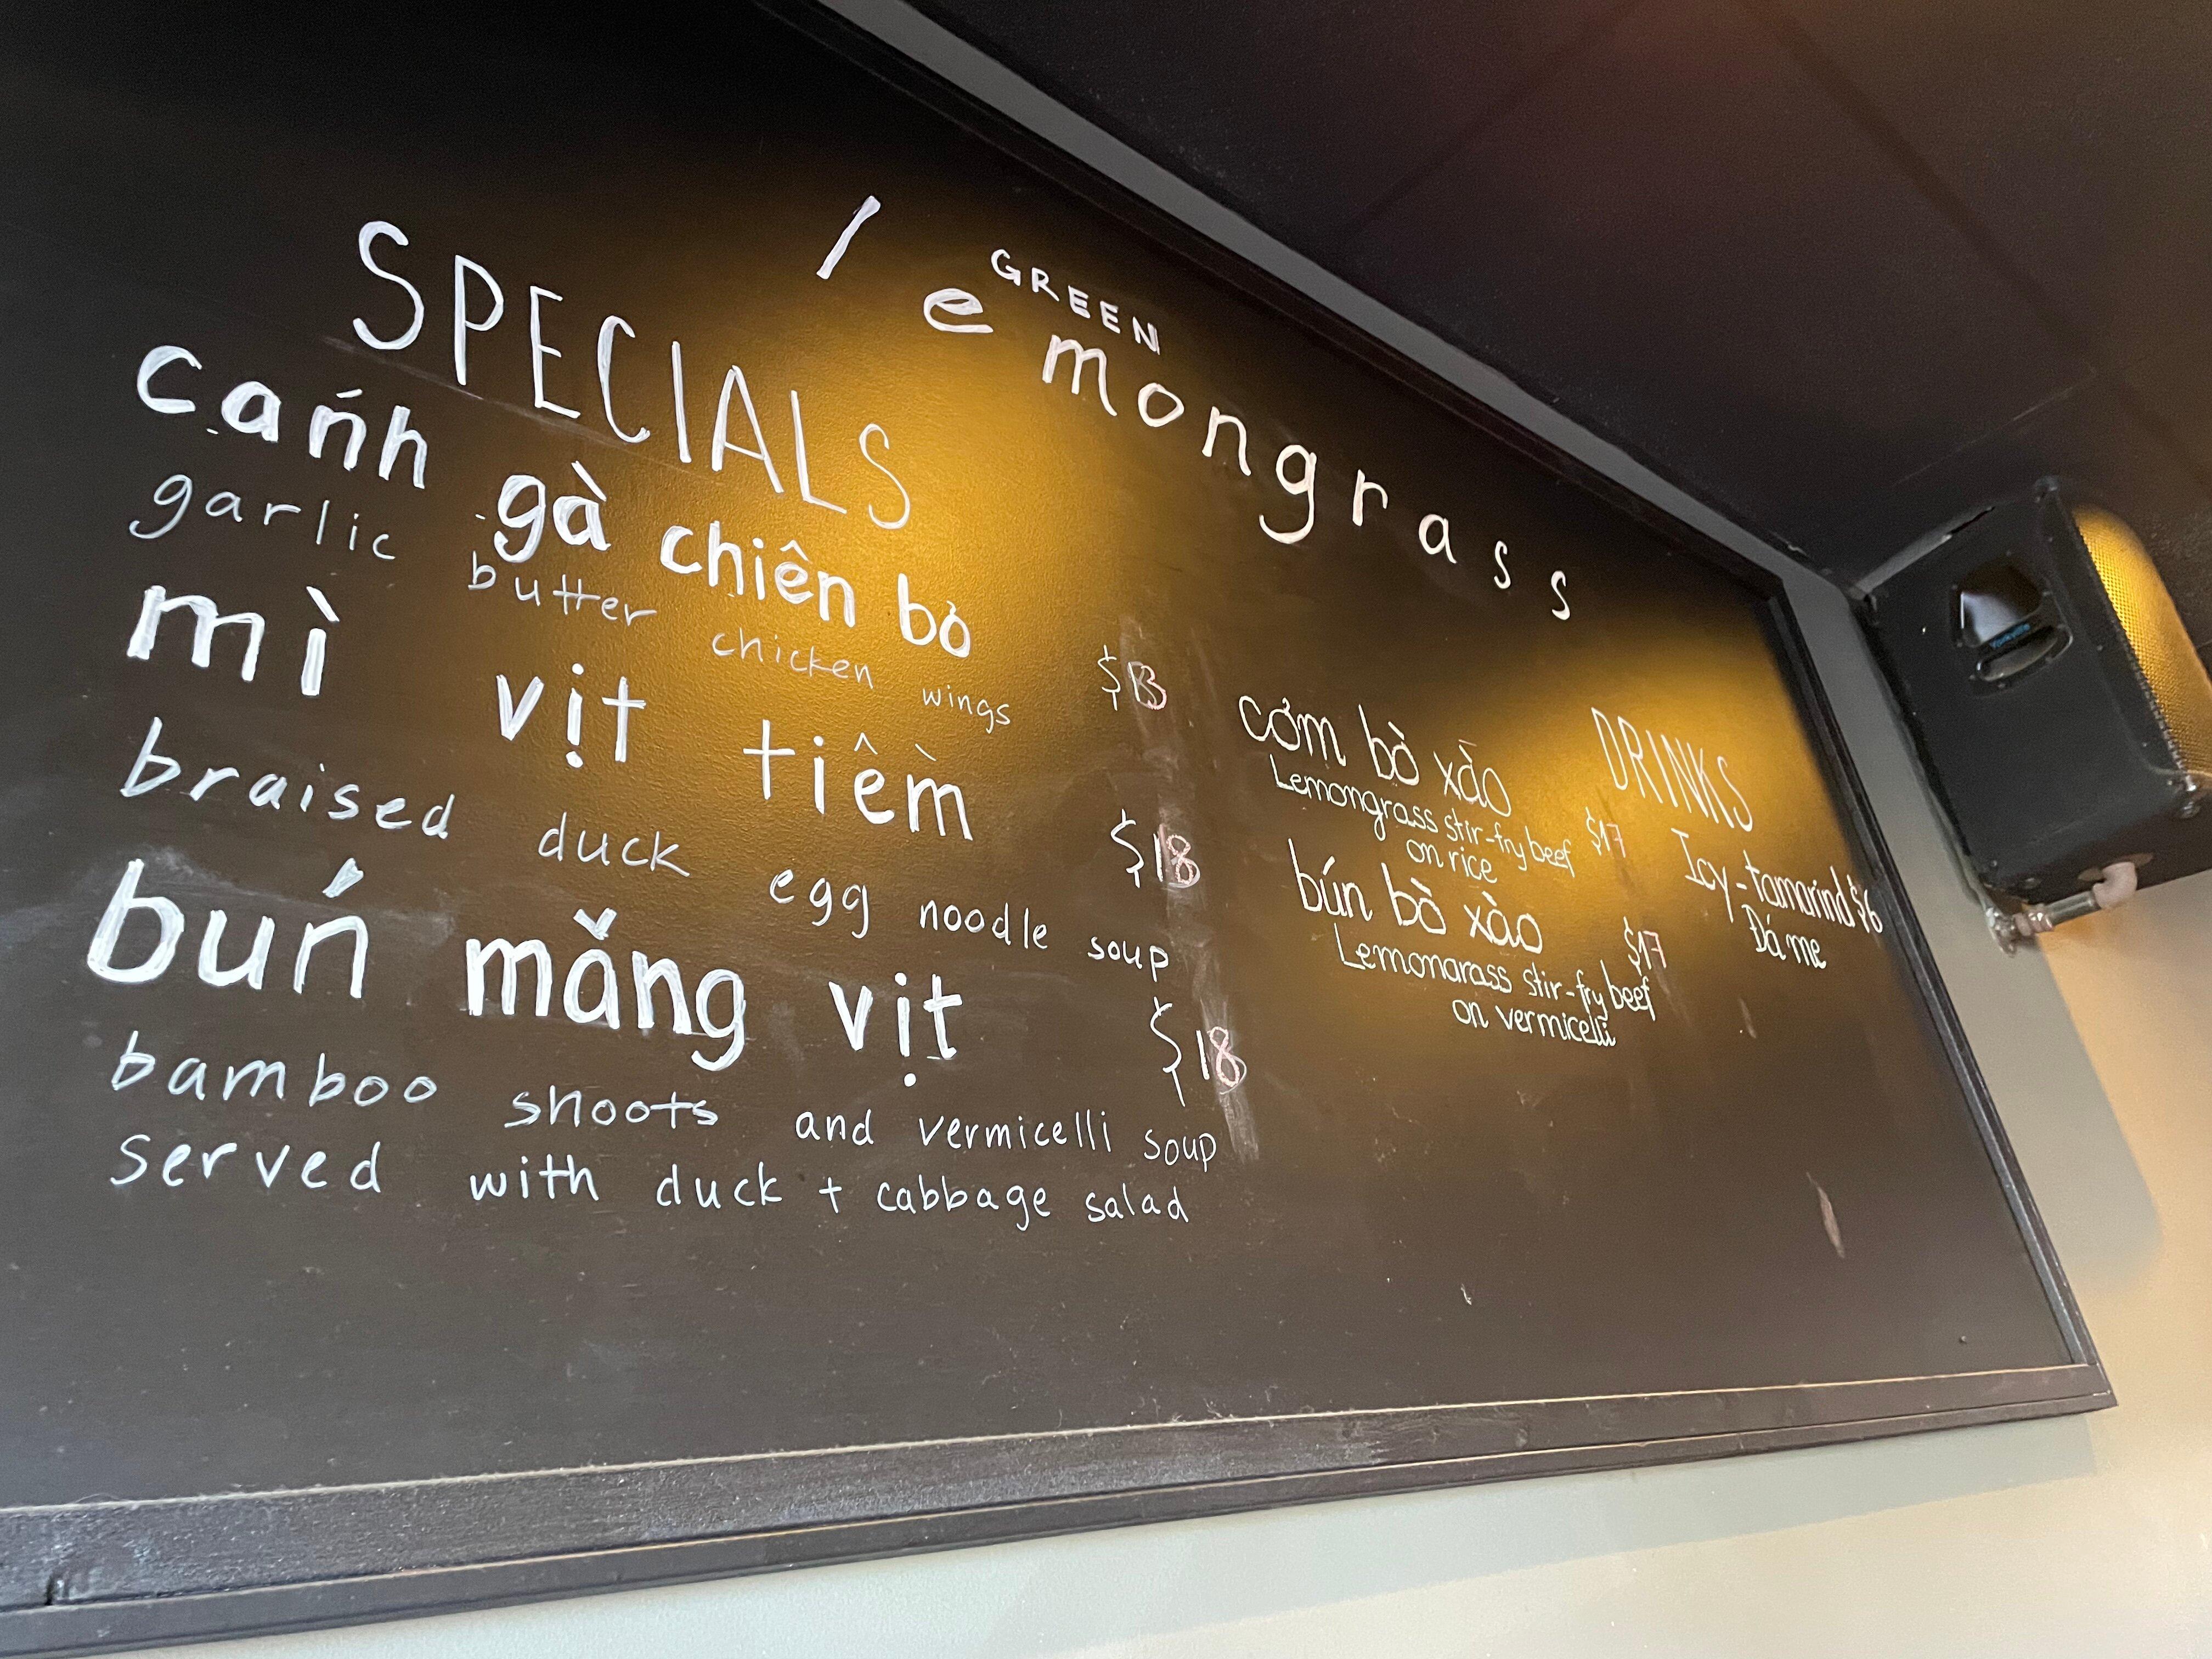 GREEN
lemongrass
SPECIALS
cánh gà chiên bơ
garlic butter chicken wings $13
mì vịt tiềm
braised duck egg noodle soup $18
bún măng vịt $18
bamboo shoots and vermicelli soup
served with duck + cabbage salad
cơm bò xào
Lemongrass stir-fry beef $17
on rice
bún bò xào $17
Lemongrass stir-fry beef
on vermicelli
DRINKS
Icy-tamarind $6
Đá me
Yorkville